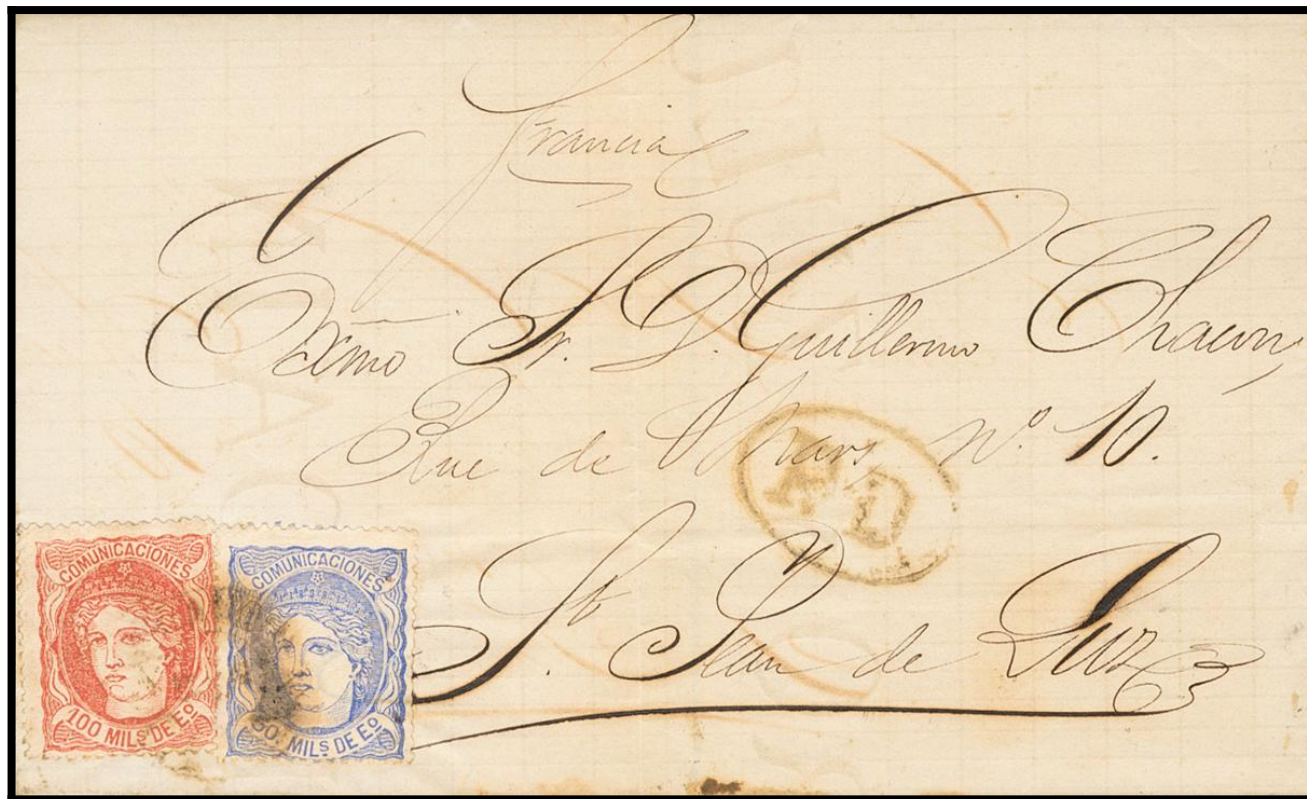 Francia
Exmo Sr. D. Guillermo Chacon,
Rue de Mars nº 10.
PD
St Jean de Luz
COMUNICACIONES
100 MILS DE EO
COMUNICACIONES
50 MILS DE EO